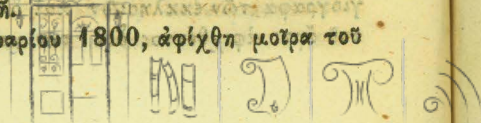 ή.
αρίου 1800, ἀφίχθη μοῖρα τοῦ